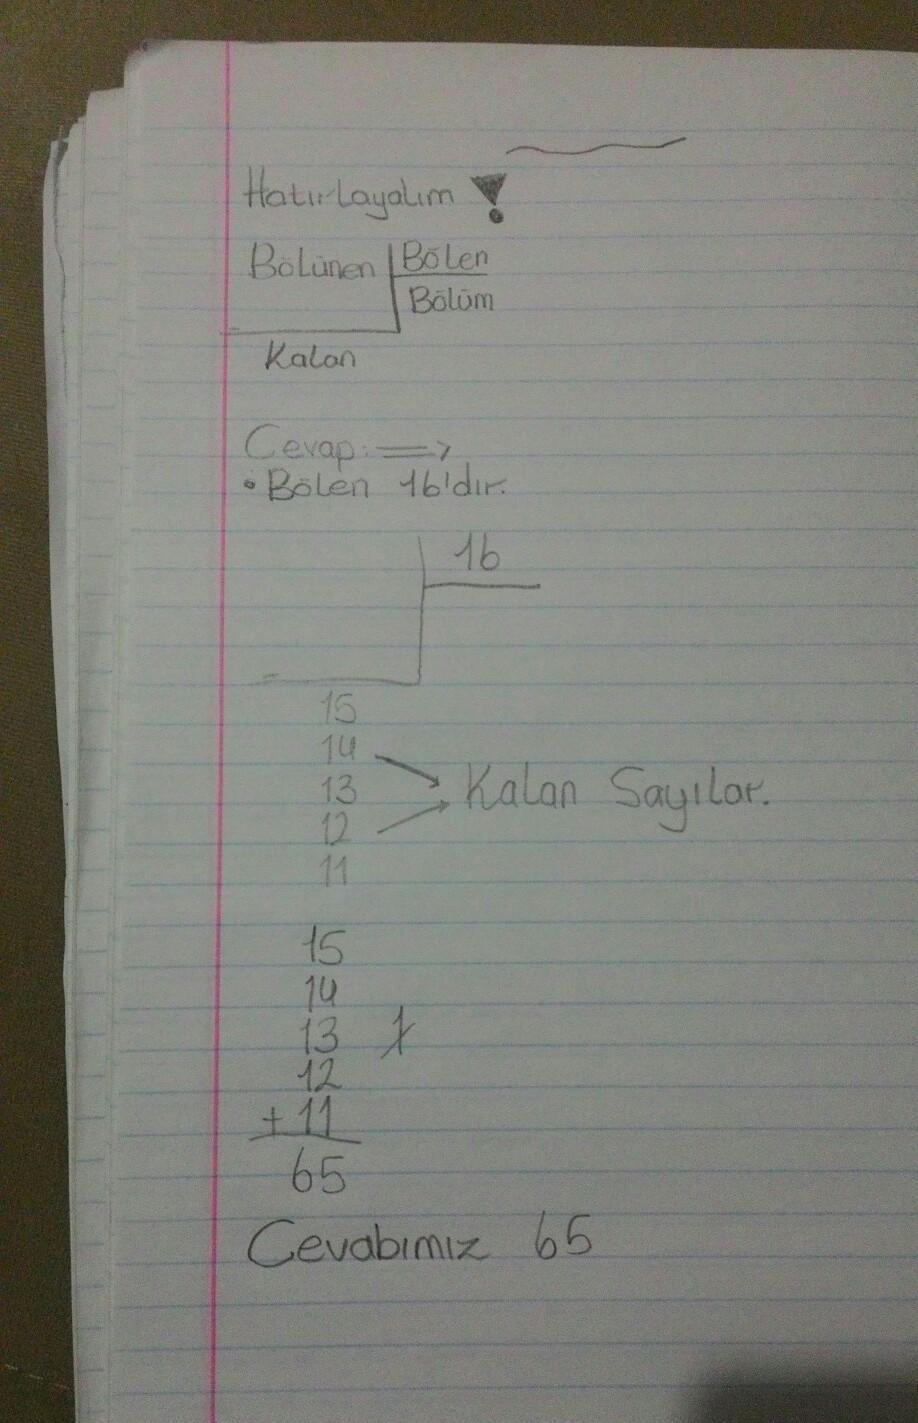 Hatırlayalım !
Bölünen Bölen
Bölüm
Kalan
Cevap: =>
• Bölen 16'dır.
16
15
14
13 Kalan Sayılar.
12
11
15
14
13 1
12
+ 11
65
Cevabımız 65